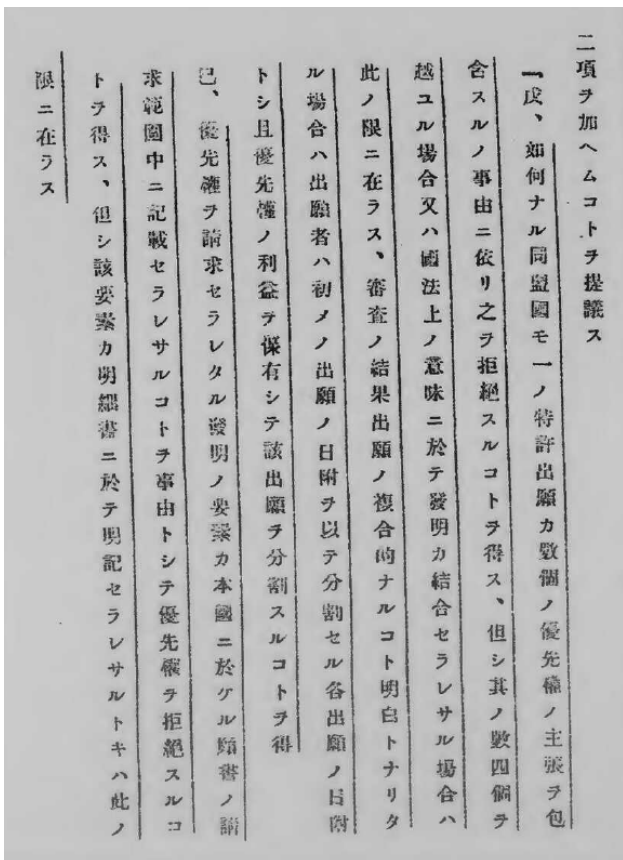 二項ヲ加ヘムコトヲ提議ス
「戊、如何ナル同盟國モ一ノ特許出願カ數個ノ優先權ノ主張ヲ包
含スルノ事由ニ依リ之ヲ拒絕スルコトヲ得ス、但シ其ノ數四個ヲ
越ユル場合又ハ國法上ノ意味ニ於テ發明カ結合セラレサル場合ハ
此ノ限ニ在ラス、審査ノ結果出願ノ複合的ナルコト明白トナリタ
ル場合ハ出願者ハ初メノ出願ノ日附ヲ以テ分割セル各出願ノ日附
トシ且優先權ノ利益ヲ保有シテ該出願ヲ分割スルコトヲ得
己、優先權ヲ請求セラレタル發明ノ要素カ本國ニ於ケル願書ノ請
求範圍中ニ記載セラレサルコトヲ事由トシテ優先權ヲ拒絕スルコ
トヲ得ス、但シ該要素カ明細書ニ於テ明記セラレサルトキハ此ノ
限ニ在ラス